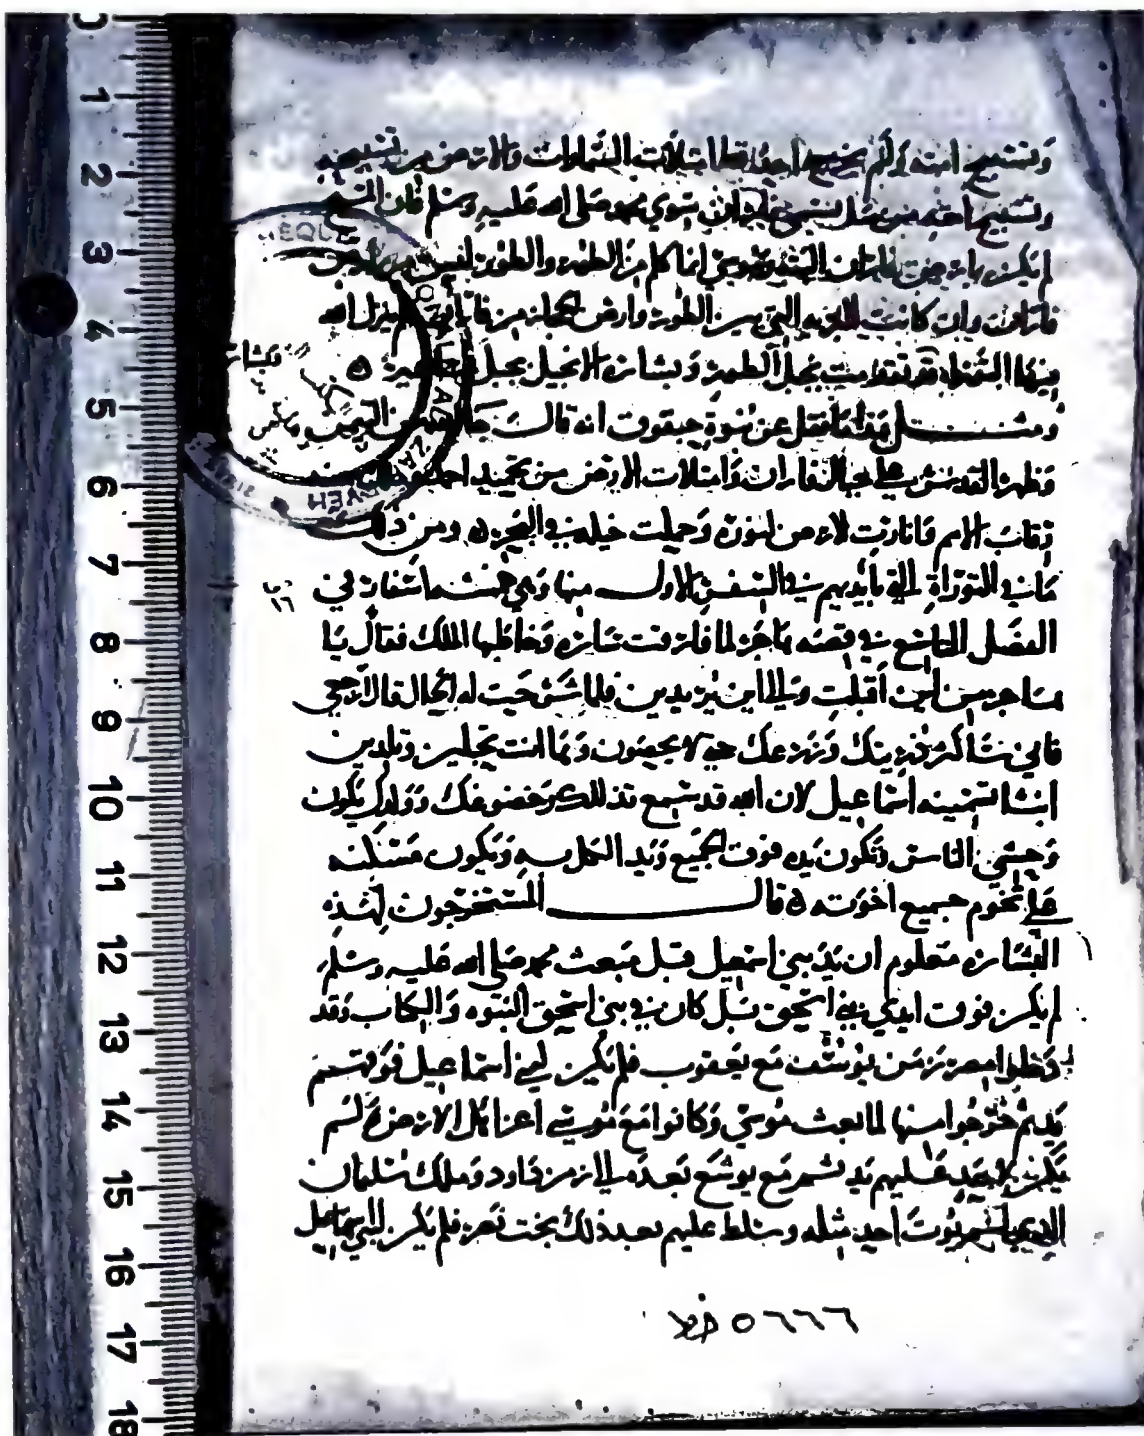 وتسبيح امته ولم يخرج احد امتلات السماوات والارض من تسبيحه
وتسبيح امته من سوي محمد صلى الله عليه وسلم فان المسيح
لم يكن بارض فاران البتة وموسى انما كلم من الطور والطور ليس من ارض
فاران وان كانت البريه التي بين الطور وارض الحجاز من فاران ينزل الله
فيها التوراة وبشارة الانجيل بجبل
ومثــل هذا ما نقل عن نبوة حبقوق انه قال جا الله من اليمن
وظهر القدس على جبال فاران وامتلات الارض من تحميد احمد
رقاب الامم وانارت الارض لنوره وحملت خيله في البحر ه ومن ذلك
ما في التوراة التي بايديهم في السفر الاول منها وهي خمسة اسفار في
الفصل التاسع في قصه هاجر لما فارقت ساره وخاطبها الملك فقال يا
هاجر من اين اقبلت والى اين تريدين فلما شرحت له الحال قال ارجعي
فاني ساكثر ذريتك وزرعك حتى لا يحصون وها انت تحبلين وتلدين
ابنا تسمينه اسماعيل لان الله قد سمع تذللك وخضوعك وولدك يكون
وحشي الناس وتكون يده فوق الجميع ويد الكل به ويكون مسكنه
على تخوم جميع اخوته ه قال المستخرجون لهذه
البشاره معلوم ان يد بني اسمعيل قبل مبعث محمد صلى الله عليه وسلم
لم يكن فوق ايدي بني اسحق بل كان في بني اسحق النبوه والكتاب وقد
دخلوا مصر زمن يوسف مع يعقوب فلم يكن لبني اسماعيل فوقهم
يد ثم خرجوا منها لما بعث موسى وكانوا مع موسى اعز اهل الارض لم
يكن لاحد عليهم يد ثم مع يوشع بعده الى زمن داود وملك سليمان
الذي لم يوت احد مثله وسلط عليهم بعد ذلك بخت نصر فلم يكن لبني اسماعيل
٥٦٦٦ خط